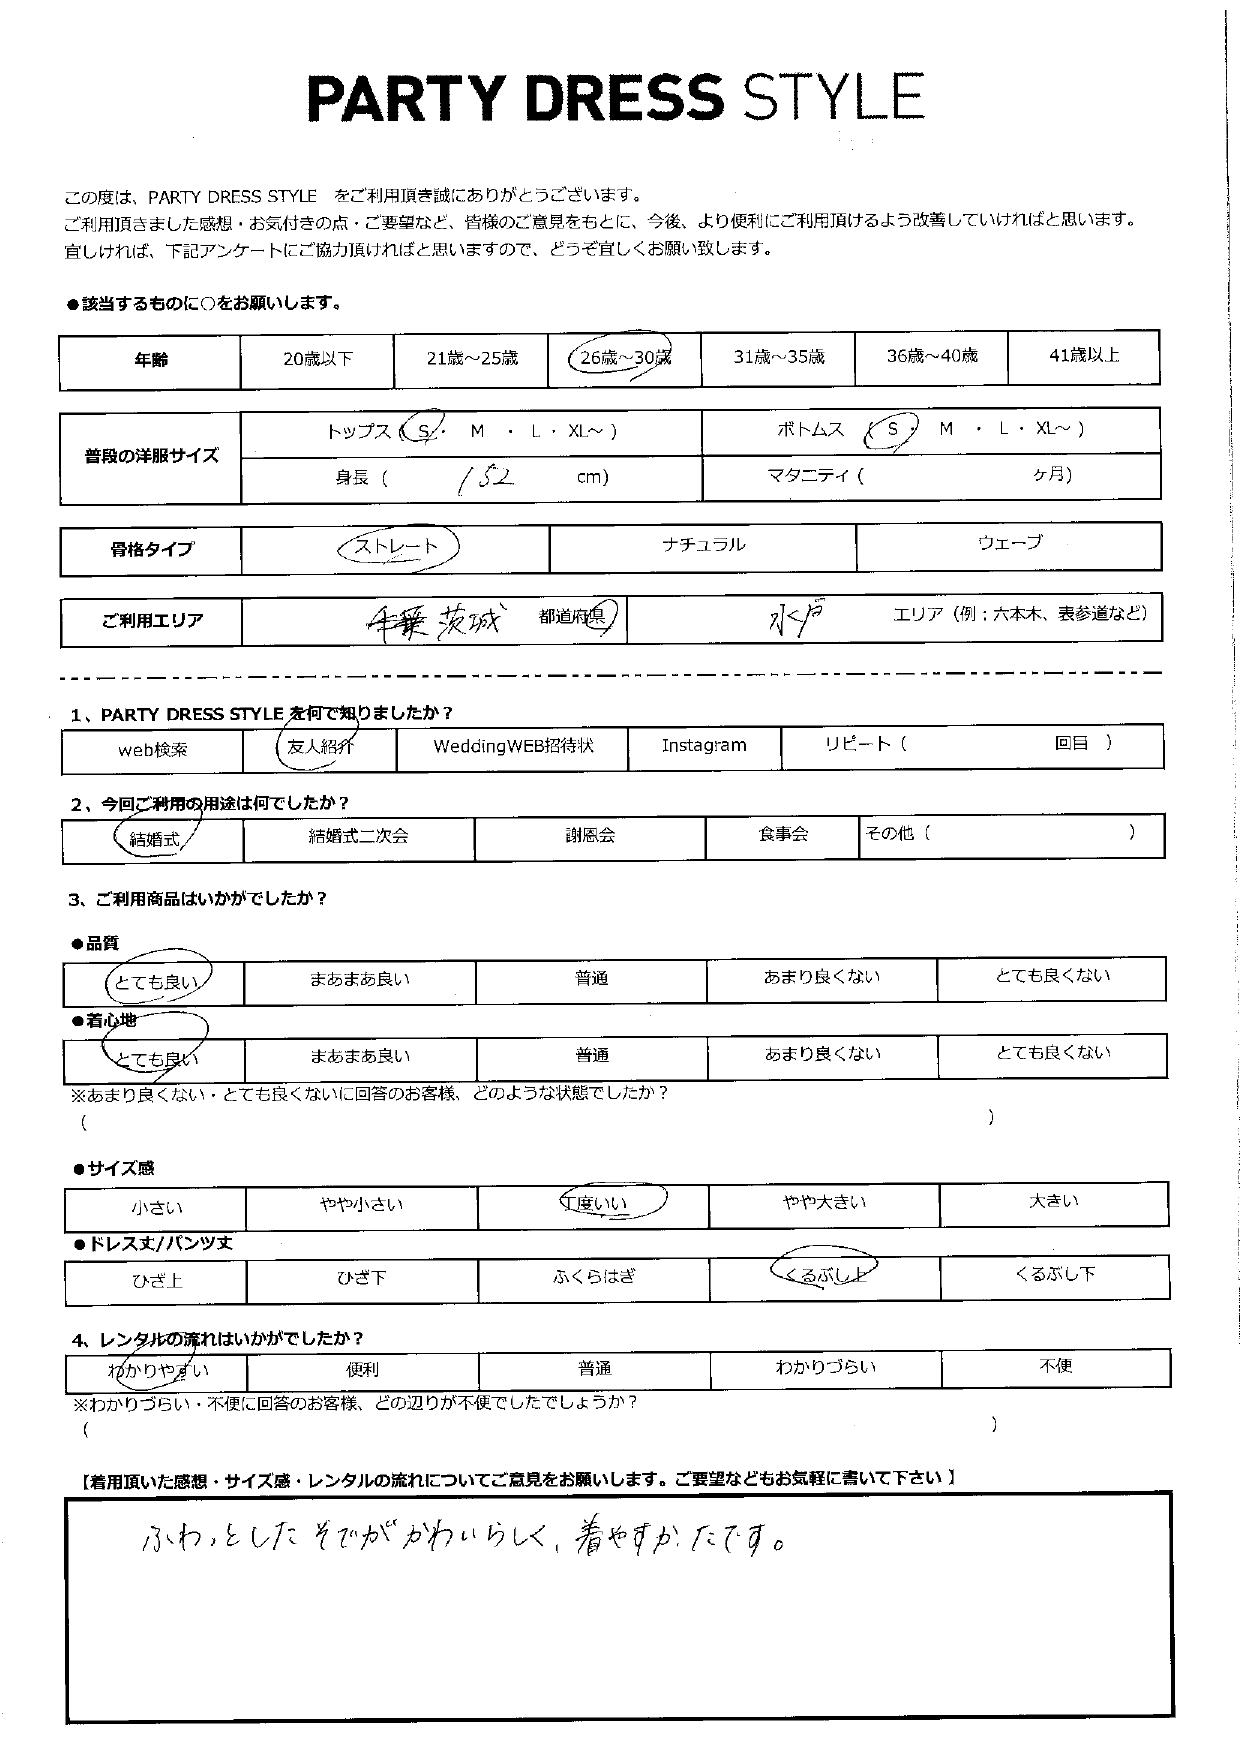 PARTY DRESS STYLE
この度は、PARTY DRESS STYLE をご利用頂き誠にありがとうございます。
ご利用頂きました感想・お気付きの点・ご要望など、皆様のご意見をもとに、今後、より便利にご利用頂けるよう改善していければと思います。
宜しければ、下記アンケートにご協力頂ければと思いますので、どうぞ宜しくお願い致します。
●該当するものに○をお願いします。
年齢 20歳以下 21歳～25歳 26歳～30歳 31歳～35歳 36歳～40歳 41歳以上
普段の洋服サイズ
トップス ( S ・ M ・ L ・ XL～ ) ボトムス ( S ・ M ・ L ・ XL～ )
身長 ( 152 cm) マタニティ ( ヶ月)
骨格タイプ ストレート ナチュラル ウェーブ
ご利用エリア 千葉 茨城 都道府県 水戸 エリア（例；六本木、表参道など）
1、PARTY DRESS STYLE を何で知りましたか？
web検索 友人紹介 WeddingWEB招待状 Instagram リピート ( 回目 )
2、今回ご利用の用途は何でしたか？
結婚式 結婚式二次会 謝恩会 食事会 その他 ( )
3、ご利用商品はいかがでしたか？
●品質
とても良い まあまあ良い 普通 あまり良くない とても良くない
●着心地
とても良い まあまあ良い 普通 あまり良くない とても良くない
※あまり良くない・とても良くないに回答のお客様、どのような状態でしたか？
( )
●サイズ感
小さい やや小さい 丁度いい やや大きい 大きい
●ドレス丈/パンツ丈
ひざ上 ひざ下 ふくらはぎ くるぶし上 くるぶし下
4、レンタルの流れはいかがでしたか？
わかりやすい 便利 普通 わかりづらい 不便
※わかりづらい・不便に回答のお客様、どの辺りが不便でしたでしょうか？
( )
【着用頂いた感想・サイズ感・レンタルの流れについてご意見をお願いします。ご要望などもお気軽に書いて下さい 】
ふわっとした そでが かわいらしく、着やすかったです。